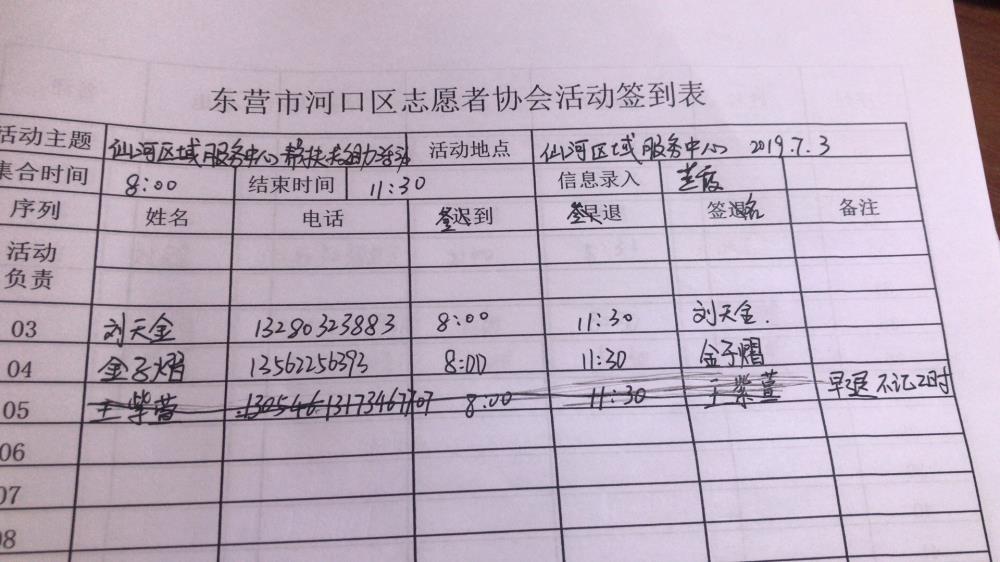 东营市河口区志愿者协会活动签到表
活动主题 仙河区域服务中心帮扶老人助力活动 活动地点 仙河区域服务中心 2019.7.3
集合时间 8:00 结束时间 11:30 信息录入
序列 姓名 电话 签到 签退 签名 备注
活动
负责
03 刘天金 13280323883 8:00 11:30 刘天金.
04 金子熠 13562256393 8:00 11:30 金子熠
05 8:00 11:30 早退 不记工时
06
07
08